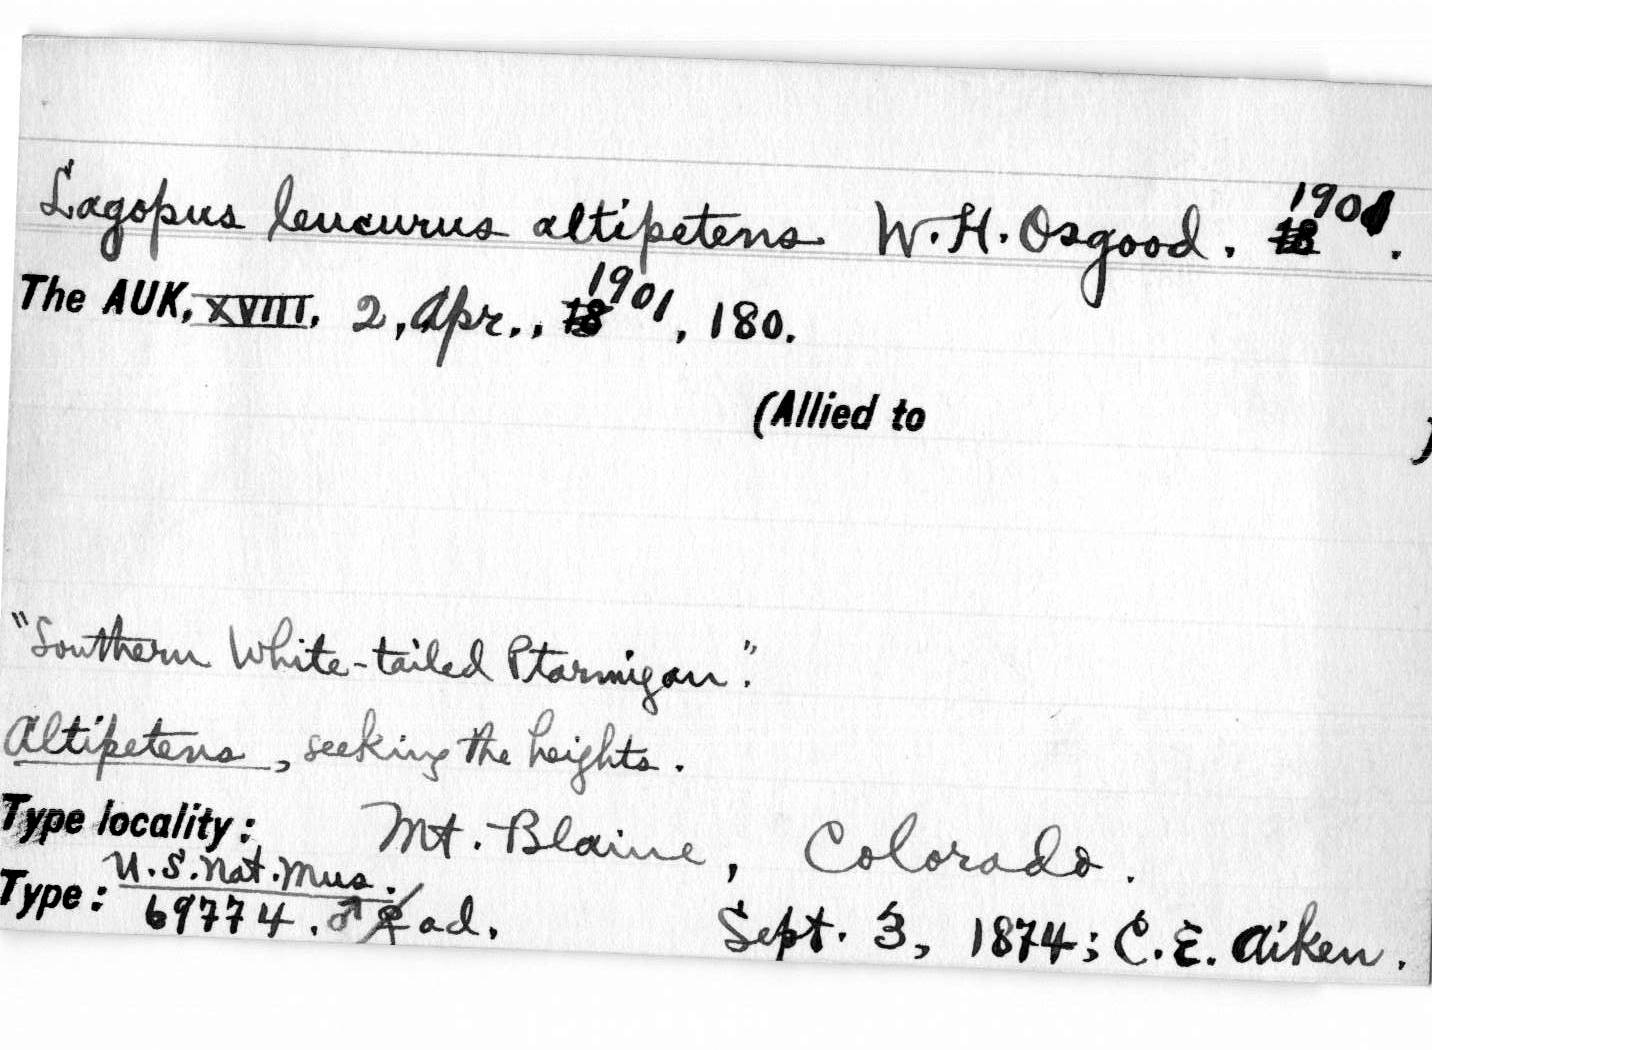 Lagopus leucurus altipetens W. H. Osgood. 1901.
The AUK, XVIII, 2, Apr., 1901, 180.
(Allied to )
"Southern White-tailed Ptarmigan".
Altipetens, seeking the heights.
Type locality: Mt. Blaine, Colorado.
Type: U.S. Nat. Mus. 69774. ♂ ♀ ad. Sept. 3, 1874; C. E. Aiken.